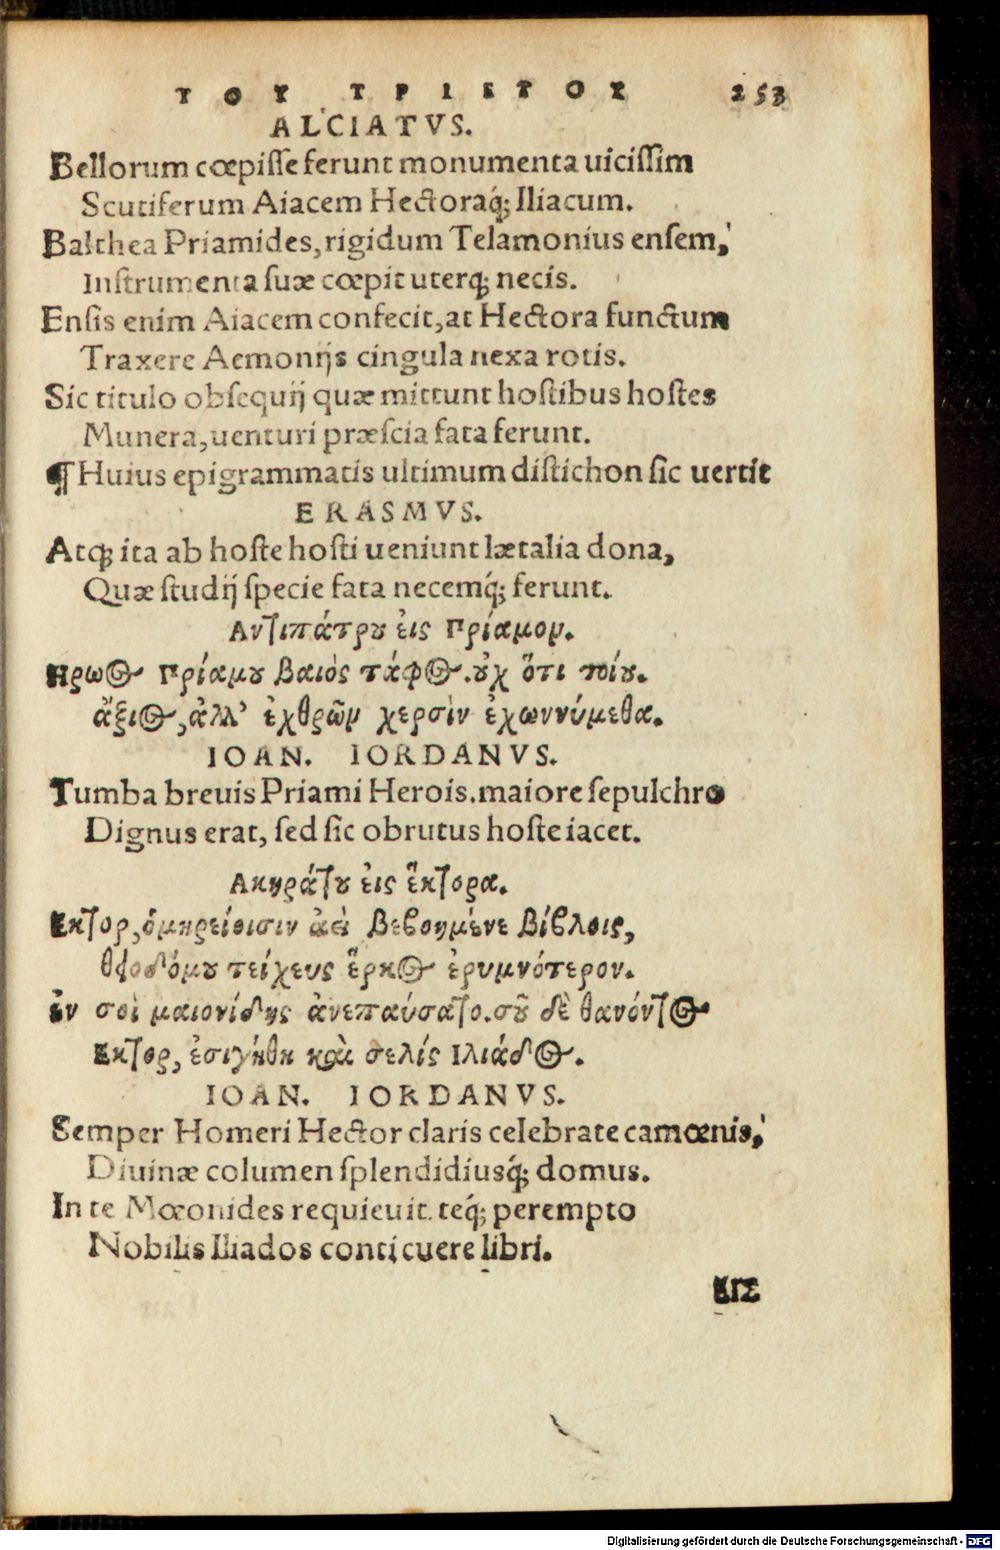 ΤΟΥ ΤΡΙΣΤΟΥ 253
ALCIATVS.
Bellorum cœpisse ferunt monumenta uicissim
Scutiferum Aiacem Hectoraq́; Iliacum.
Balthea Priamides, rigidum Telamonius ensem,
Instrumenta suæ cœpit uterq; necis.
Ensis enim Aiacem confecit, at Hectora functum
Traxere Aemonijs cingula nexa rotis.
Sic titulo obsequij quæ mittunt hostibus hostes
Munera, uenturi præscia fata ferunt.
¶ Huius epigrammatis ultimum distichon sic uertit
ERASMVS.
Atq; ita ab hoste hosti ueniunt lætalia dona,
Quæ studij specie fata necemq́; ferunt.
Αντιπάτρȣ ἐις Πρίαμον.
Ηρωος Πρίαμȣ βαιὸς τάφος. ȣχ ὅτι τοίȣ.
ἄξιος, ἀλλ' ἐχθρῶν χερσὶν ἐχωννύμεθα.
IOAN. IORDANVS.
Tumba breuis Priami Herois. maiore sepulchro
Dignus erat, sed sic obrutus hoste iacet.
Ακηράτȣ ἐις ἕκτορα.
Εκτορ, ὁμηρείοισιν ἀεὶ βεβοημένε βίβλοις,
θεοδόμȣ τείχευς ἕρκος ἐρυμνότερον.
ἐν σοὶ μαιονίδης ἀνεπαύσατο. σοῦ δὲ θανόντος
Εκτορ, ἐσιγήθη καὶ σελίς Ιλιάδος.
IOAN. IORDANVS.
Semper Homeri Hector claris celebrate camœnis,
Diuinæ columen splendidiusq́; domus.
In te Mœonides requieuit. teq́; perempto
Nobilis Iliados conticuere libri.
ΕΙΣ
Digitalisierung gefördert durch die Deutsche Forschungsgemeinschaft - DFG